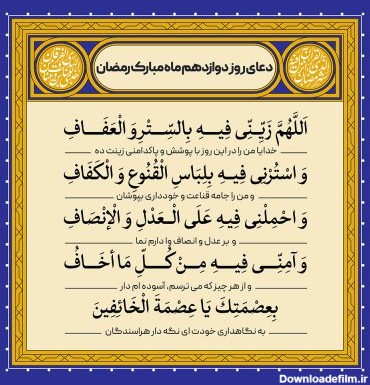 دعای روز دوازدهم ماه مبارک رمضان
اَللَّهُمَّ زَیِّنِّی فِیهِ بِالسِّتْرِ وَ الْعَفَافِ
خدایا من را در این روز با پوشش و پاکدامنی زینت ده
وَ اسْتُرْنِی فِیهِ بِلِبَاسِ الْقُنُوعِ وَ الْکَفَافِ
و من را جامه قناعت و خودداری بپوشان
وَ احْمِلْنِی فِیهِ عَلَی الْعَدْلِ وَ الْإِنْصَافِ
و بر عدل و انصاف وا دارم نما
وَ آمِنِّی فِیهِ مِنْ کُلِّ مَا أَخَافُ
و از هر چیز که می ترسم، آسوده ام دار
بِعِصْمَتِکَ یَا عِصْمَةَ الْخَائِفِینَ
به نگاهداری خودت ای نگه دار هراسندگان
Downloadefilm.ir